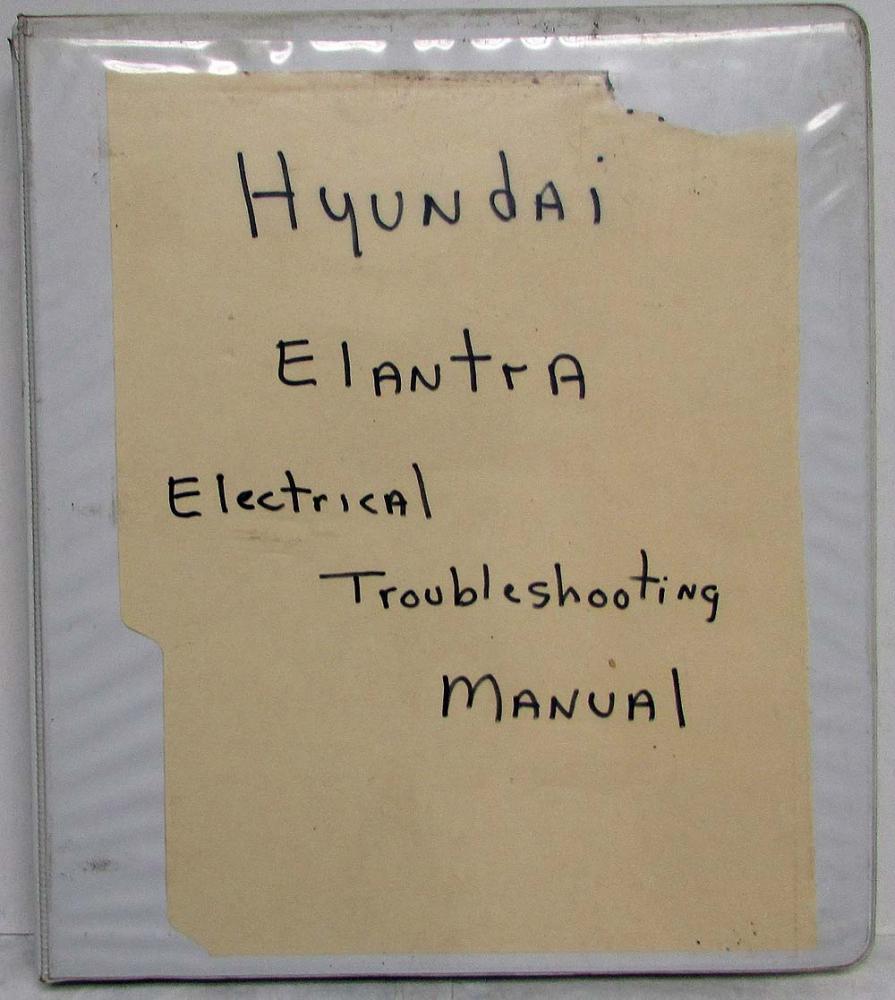 Hyundai
Elantra
Electrical
Troubleshooting
Manual